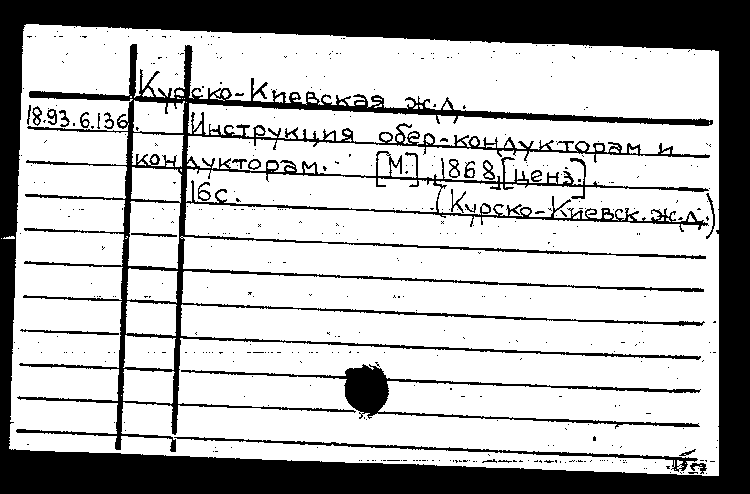 Курско-Киевская ж.д.
18.93.6.136. Инструкция обер-кондукторам и
кондукторам. [М.], 1868, [ценз.].
16с. (Курско-Киевск. ж.д.).